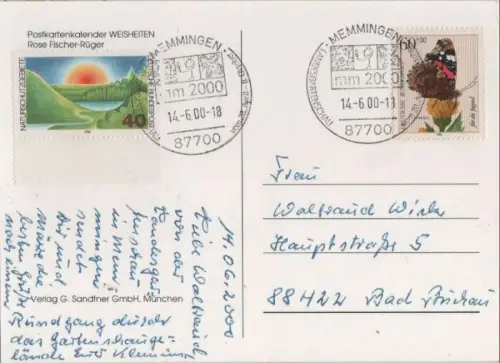 Postkartenkalender WEISHEITEN
Rose Fischer-Rüger
NATURSCHUTZGEBIETE
DEUTSCHE BUNDESPOST
40
MEMMINGEN
mm 2000
14.-6.00-18
87700
MEMMINGEN
mm 2000
14.-6.00-18
87700
60
für die Jugend
14.06.2000
Liebe Waltraud
von der
Landesgar
tenschau
in Mem
mingen
sendet
Dir und
Maxe die
besten Grüße
nach einem
Verlag G. Sandtner GmbH, München
Rundgang durch
das Gartenschauge-
lände
Frau
Waltraud
Hauptstraße 5
88422 Bad Buchau